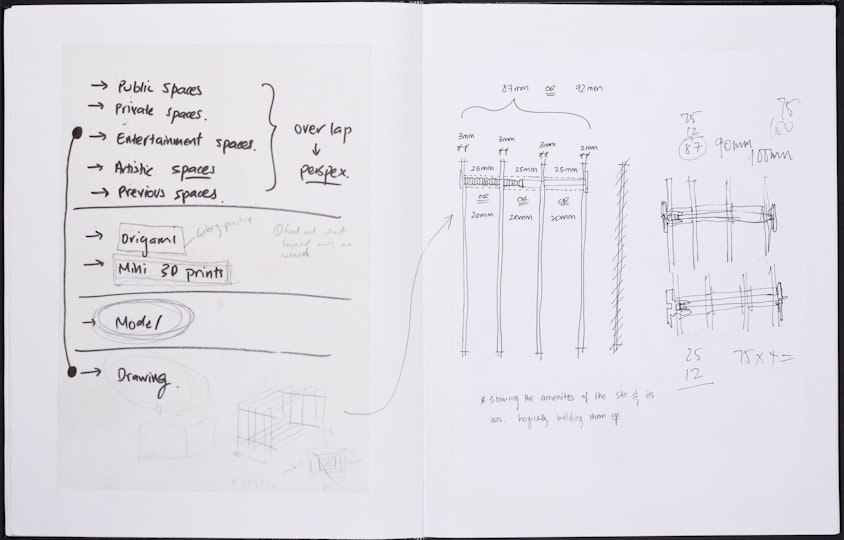 → Public spaces
→ Private spaces.
→ Entertainment spaces.
→ Artistic spaces
→ Previous spaces.
overlap
↓
perspex.
→ Origami
→ Mini 3D prints
→ Model
→ Drawing.
87mm OR 92mm
3mm 3mm 3mm 3mm
25mm 25mm 25mm
OR OR OR
20mm 20mm 20mm
* Showing the amenities of the site & its
uses. Logically building them up
75
12
87
90mm
100mm
75
100
25
12
75 x 4 =